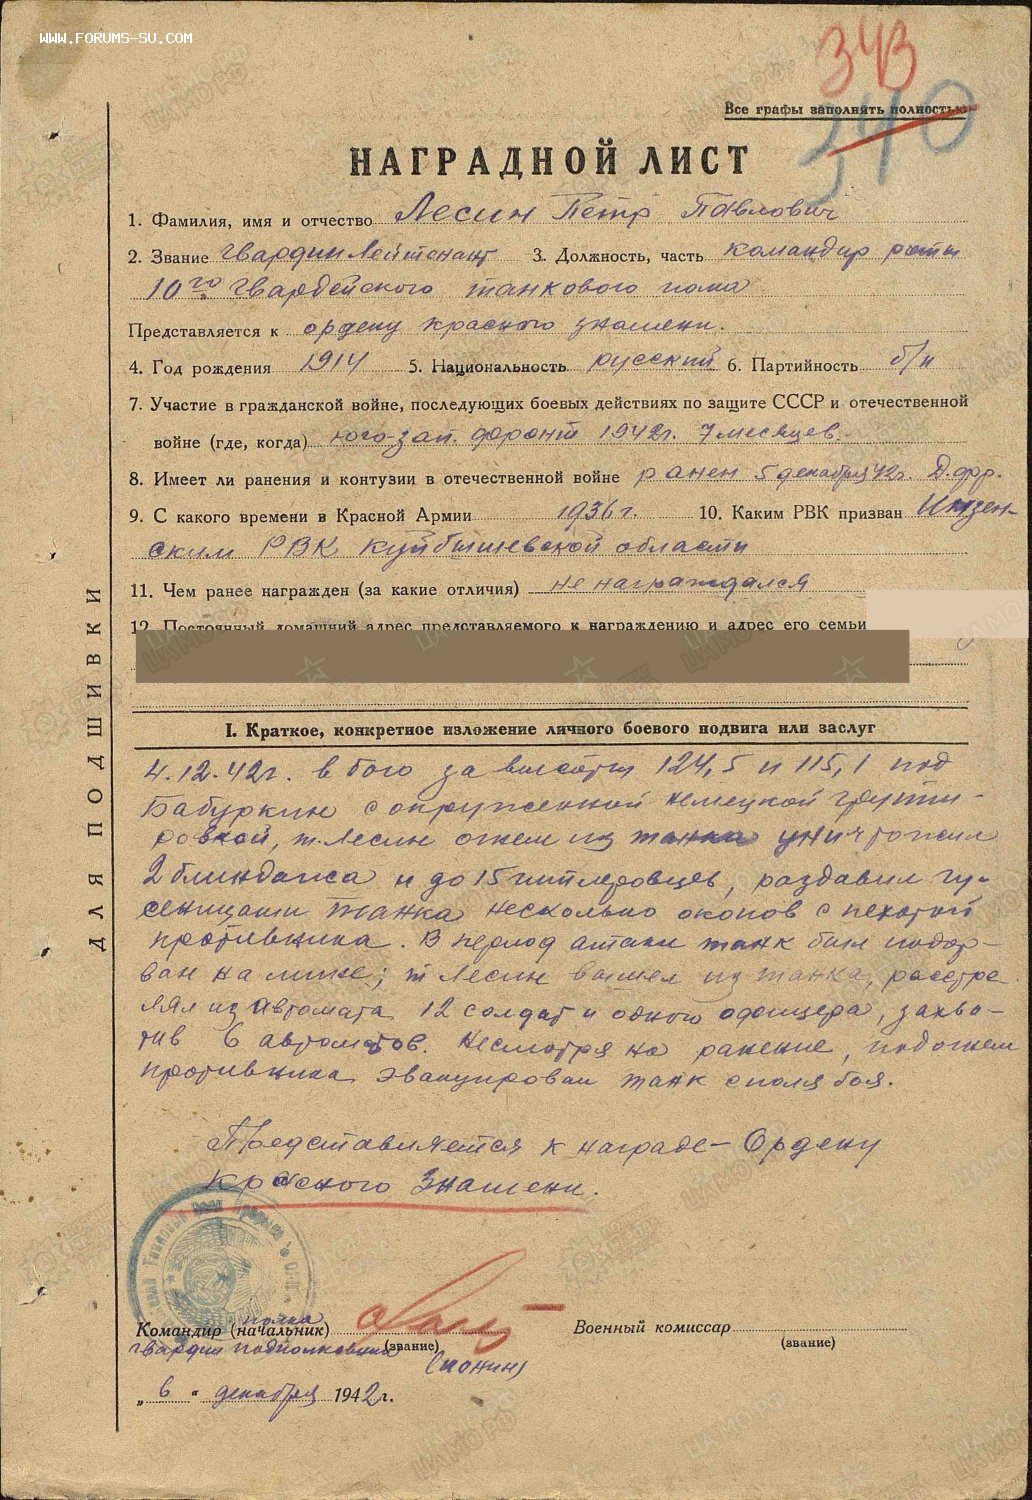 WWW.FORUMS-SU.COM
343
340
Все графы заполнять полностью
НАГРАДНОЙ ЛИСТ
1. Фамилия, имя и отчество Лесин Петр Павлович
2. Звание гвардии Лейтенант 3. Должность, часть командир роты
10го гвардейского танкового полка
Представляется к ордену красного знамени.
4. Год рождения 1914 5. Национальность русский 6. Партийность б/п
7. Участие в гражданской войне, последующих боевых действиях по защите СССР и отечественной
войне (где, когда) юго-зап. фронт 1942г. 7 месяцев.
8. Имеет ли ранения и контузии в отечественной войне ранен 5 декабря 42г. Д.фр.
9. С какого времени в Красной Армии 1936г. 10. Каким РВК призван Инзен-
ским РВК Куйбышевской области
11. Чем ранее награжден (за какие отличия) не награждался
12. Постоянный домашний адрес представляемого к награждению и адрес его семьи
I. Краткое, конкретное изложение личного боевого подвига или заслуг
4.12.42г. в бою за высоты 124,5 и 115,1 под
Бабуркин с окруженной немецкой группи-
ровкой, т. Лесин огнем из танка уничтожил
2 блиндажа и до 15 гитлеровцев, раздавил гу-
сеницами танка несколько окопов с пехотой
противника. В период атаки танк был подор-
ван на мине; т Лесин вышел из танка, расстре
лял из автомата 12 солдат и одного офицера, захва-
тив 6 автоматов. Несмотря на ранение, под огнем
противника эвакуировал танк с поля боя.
Представляется к награде - Ордену
Красного Знамени.
Командир (начальник) полка
(звание)
гвардии подполковник
Военный комиссар
(звание)
„ 6 “ декабря 1942г.
ДЛЯ ПОДШИВКИ